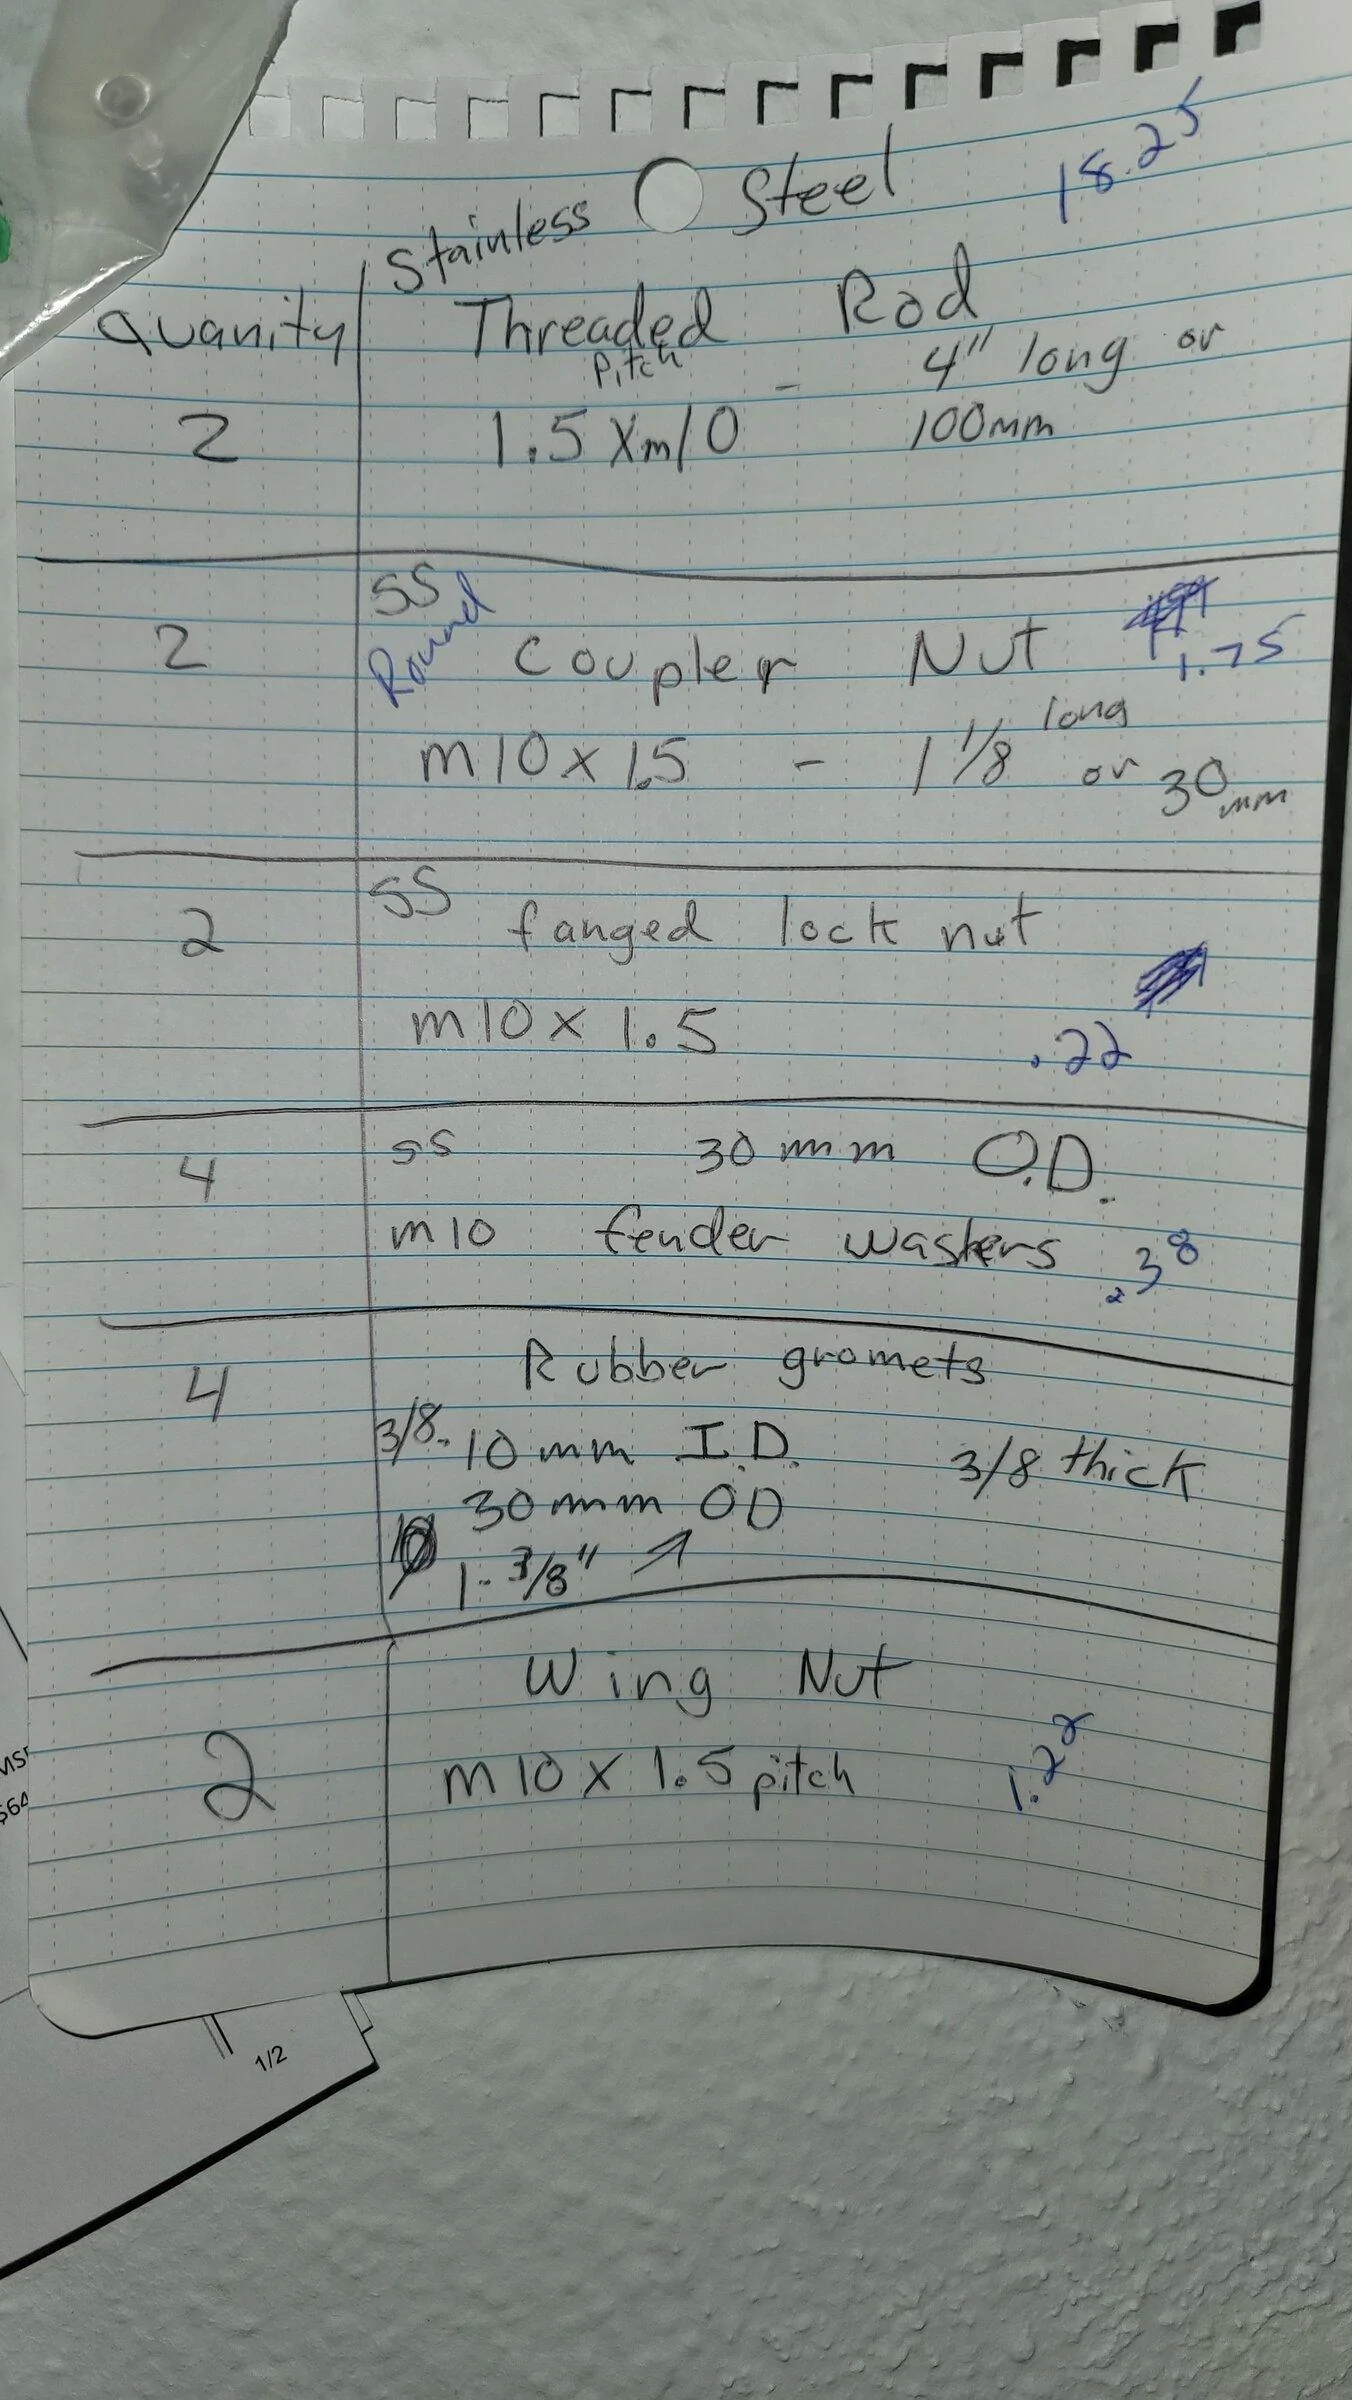 Stainless Steel 18.25
Quanity Threaded Rod
Pitch 4" long or
2 1.5 Xm10 - 100mm
SS
2 Round Coupler Nut 1.75
m10 x 1.5 - 1 1/8 long or 30mm
SS
2 fanged lock nut
m10 x 1.5 .22
4 SS 30 mm O.D.
m10 fender washers .38
4 Rubber gromets
3/8. 10 mm I.D. 3/8 thick
30 mm OD
1-3/8"
Wing Nut
2 m10 x 1.5 pitch 1.22
1/2